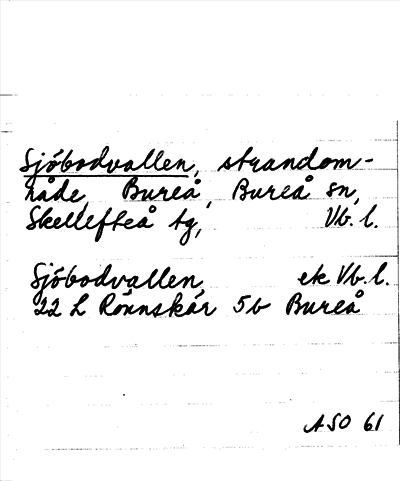 Sjöbodvallen, strandom-
råde, Bureå, Bureå sn,
Skellefteå tg, Vb. l.
Sjöbodvallen, ek Vb. l.
22 L Rönnskär 5b Bureå
ASO 61